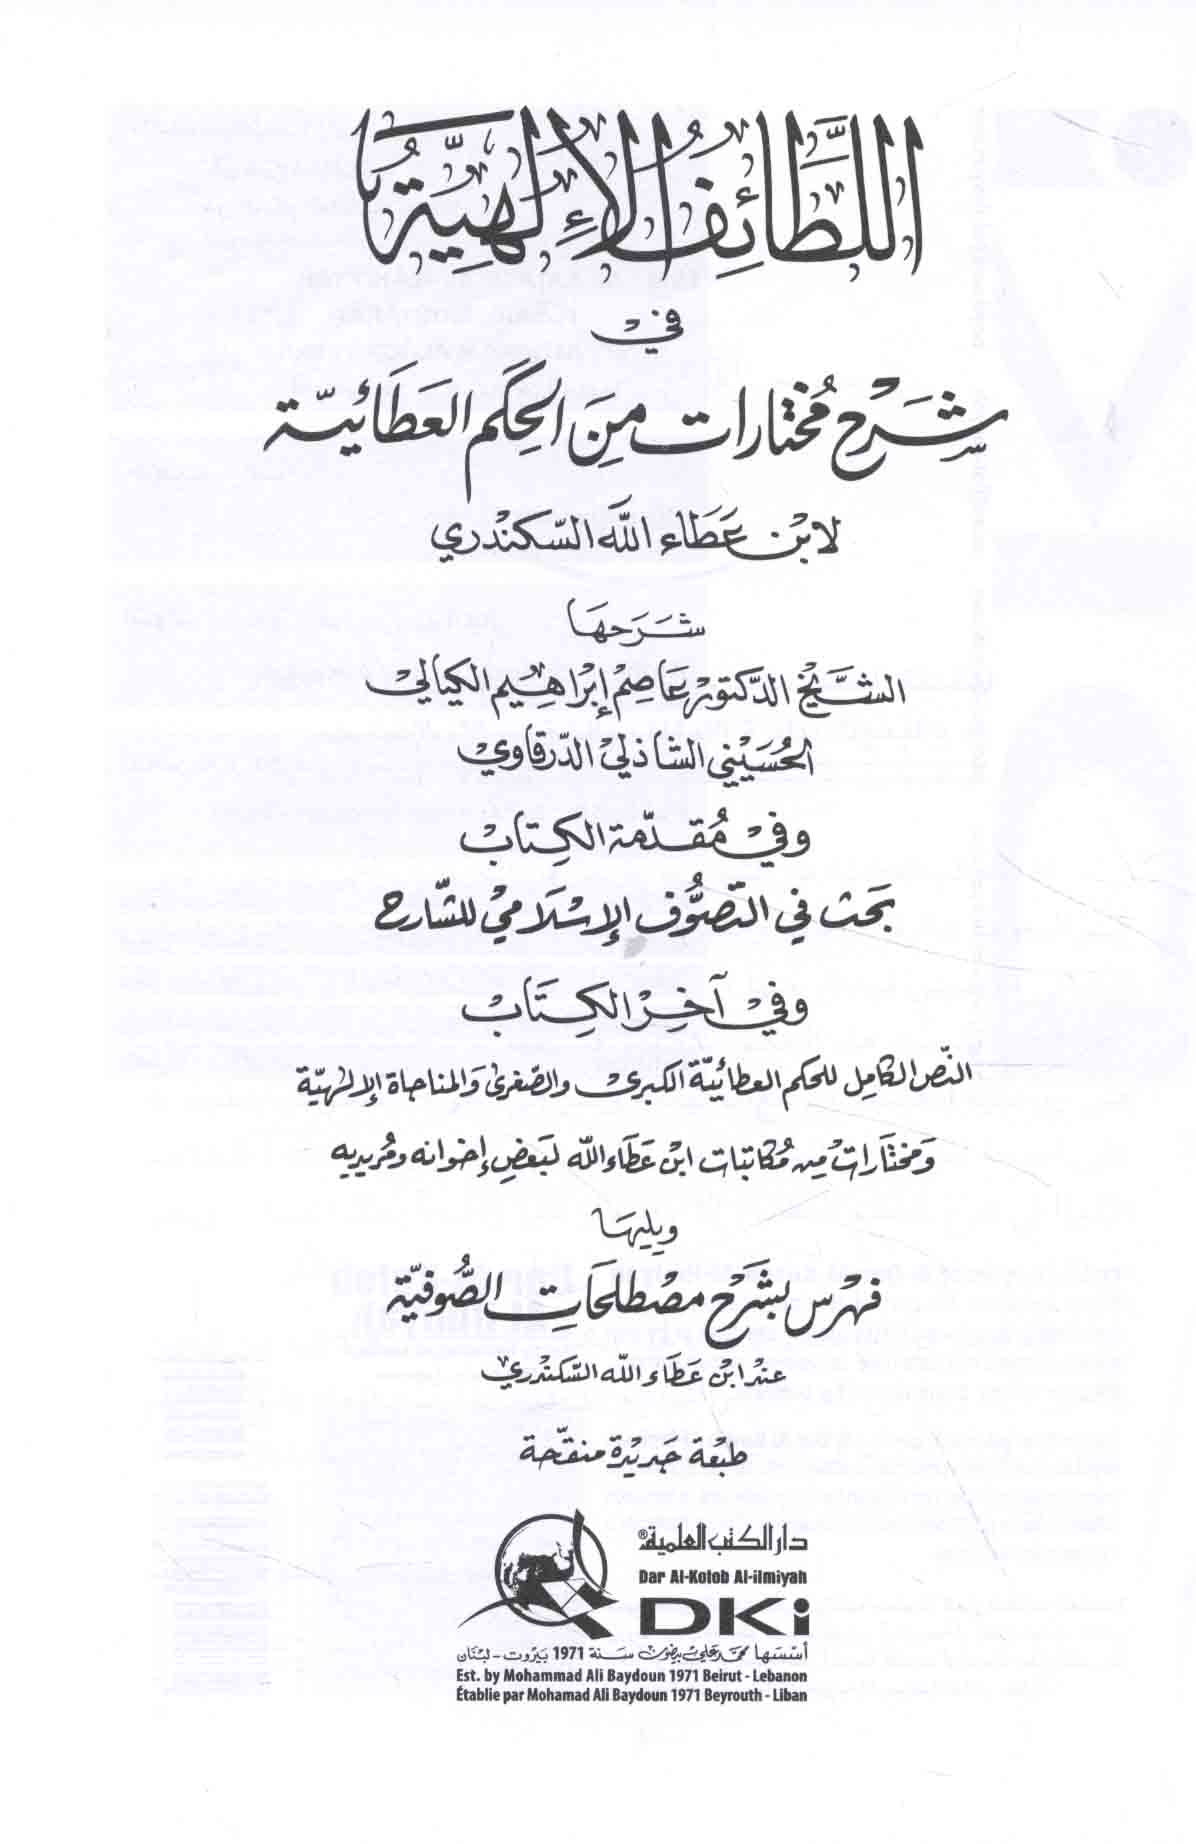 اللَّطَائِفُ الإِلَهِيَّةُ
فِي
شَرْحِ مُختَارات مِنَ الحِكَم العَطَائيّة
لابْن عَطَاء اللَّه السّكنْدري
شَرَحهَا
الشَّيْخ الدّكتورْ عَاصِمْ إبْرَاهيم الكيَالي
الحُسَيْني الشاذلي الدّرقاوي
وَفي مُقدّمة الكِتابْ
بَحث في التّصوُّف الإسْلَامي للشّارح
وَفيْ آخِرْ الكِتَابْ
النّص الكامل للحكم العطائيّة الكبرى وَالصّغرى وَالمناجاة الإلهيّة
وَمختَارَات مِن مُكاتبات ابن عَطَاء اللّه لبَعضِ إخوانه ومُريديه
وَيليهَا
فهْرس بشَرْح مصْطلحَات الصُّوفيّة
عند ابْن عَطَاء اللّه السّكنْدري
طبْعة جَديْدة منقّحة
دار الكتب العلمية®
Dar Al-Kotob Al-ilmiyah
DKi
أسّسَها محمّد عَلي بيضون سَنة 1971 بَيْروت - لبْنان
Est. by Mohammad Ali Baydoun 1971 Beirut - Lebanon
Établie par Mohamad Ali Baydoun 1971 Beyrouth - Liban